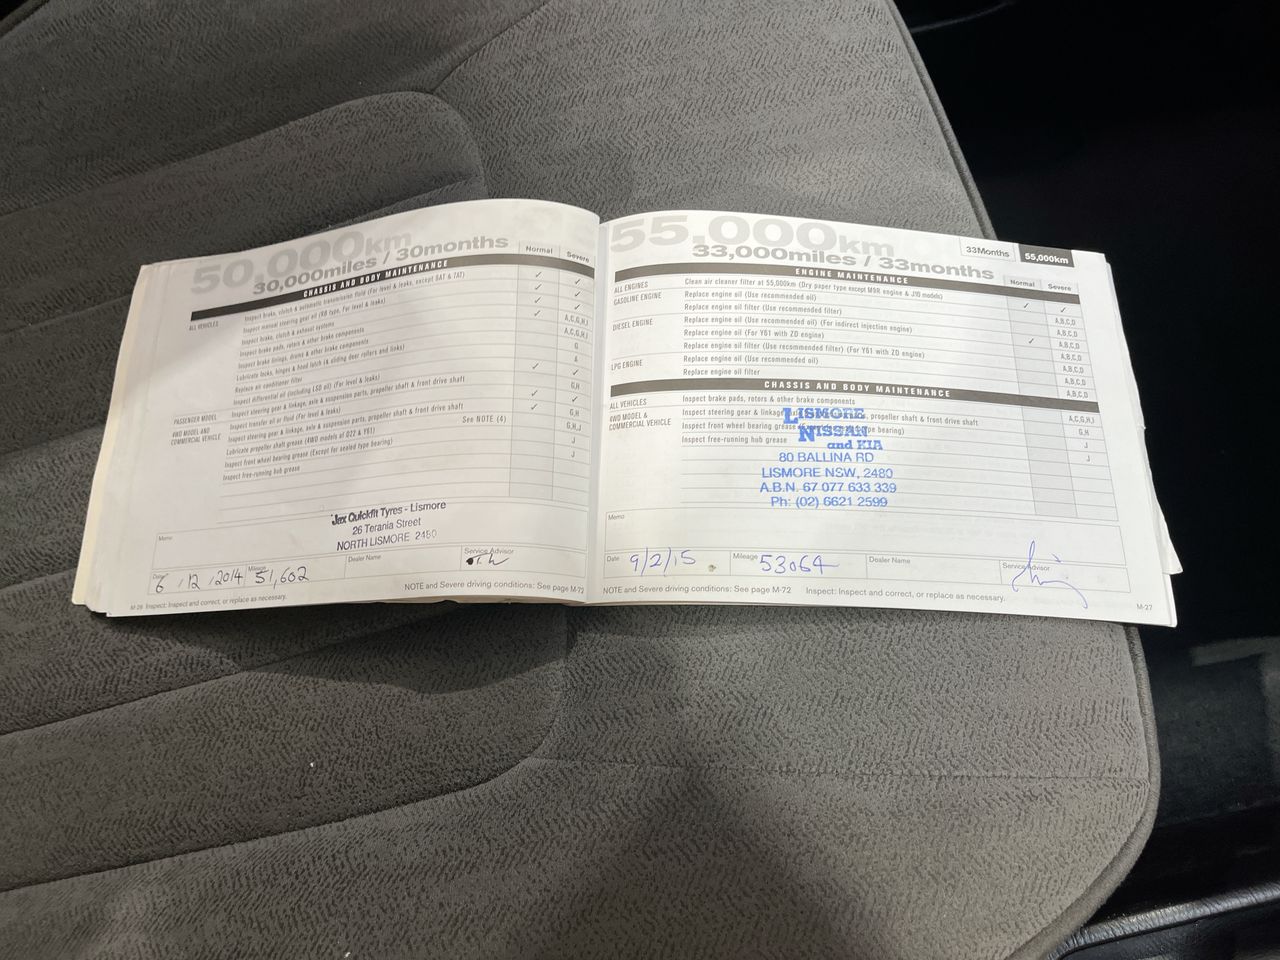 50,000km
30,000miles / 30months
Normal
Severe
CHASSIS AND BODY MAINTENANCE
ALL VEHICLES
Inspect brake, clutch & automatic transmission fluid (For level & leaks, except 5AT & 7AT)
✓ ✓
Inspect manual steering gear oil (KB type, For level & leaks)
✓ ✓
Inspect brake, clutch & exhaust systems
✓ ✓
Inspect brake pads, rotors & other brake components
✓ A,C,G,H,I
Inspect brake linings, drums & other brake components
A,C,G,H,I
Lubricate locks, hinges & hood latch (& sliding door rollers and links)
G
Replace air conditioner filter
A
Inspect differential oil (including LSD oil) (For level & leaks)
✓ ✓
PASSENGER MODEL
Inspect steering gear & linkage, axle & suspension parts, propeller shaft & front drive shaft
✓ G,H
4WD MODEL AND COMMERCIAL VEHICLE
Inspect transfer oil or fluid (For level & leaks)
✓ ✓
Inspect steering gear & linkage, axle & suspension parts, propeller shaft & front drive shaft
✓ G,H
Lubricate propeller shaft grease (4WD models of D22 & Y61)
See NOTE (4)
G,H,J
Inspect front wheel bearing grease (Except for sealed type bearing)
J
Inspect free-running hub grease
J
Jax Quickfit Tyres - Lismore
26 Terania Street
NORTH LISMORE 2480
Memo
Date 6 / 12 / 2014
Mileage 51,602
Dealer Name
Service Advisor
NOTE and Severe driving conditions: See page M-72
M-26 Inspect: Inspect and correct, or replace as necessary.
55,000km
33,000miles / 33months
33Months 55,000km
ENGINE MAINTENANCE
Normal
Severe
ALL ENGINES
Clean air cleaner filter at 55,000km (Dry paper type except M9R engine & J10 models)
GASOLINE ENGINE
Replace engine oil (Use recommended oil)
✓ ✓
Replace engine oil filter (Use recommended filter)
A,B,C,D
DIESEL ENGINE
Replace engine oil (Use recommended oil) (For indirect injection engine)
A,B,C,D
Replace engine oil (For Y61 with ZD engine)
✓ A,B,C,D
Replace engine oil filter (Use recommended filter) (For Y61 with ZD engine)
A,B,C,D
LPG ENGINE
Replace engine oil (Use recommended oil)
A,B,C,D
Replace engine oil filter
A,B,C,D
CHASSIS AND BODY MAINTENANCE
ALL VEHICLES
Inspect brake pads, rotors & other brake components
A,C,G,H,I
4WD MODEL & COMMERCIAL VEHICLE
Inspect steering gear & linkage, propeller shaft & front drive shaft
G,H
Inspect front wheel bearing grease type bearing)
J
Inspect free-running hub grease
J
LISMORE
NISSAN
and KIA
80 BALLINA RD
LISMORE NSW, 2480
A.B.N. 67 077 633 339
Ph: (02) 6621 2599
Memo
Date 9/2/15
Mileage 53064
Dealer Name
Service Advisor
NOTE and Severe driving conditions: See page M-72
Inspect: Inspect and correct, or replace as necessary.
M-27